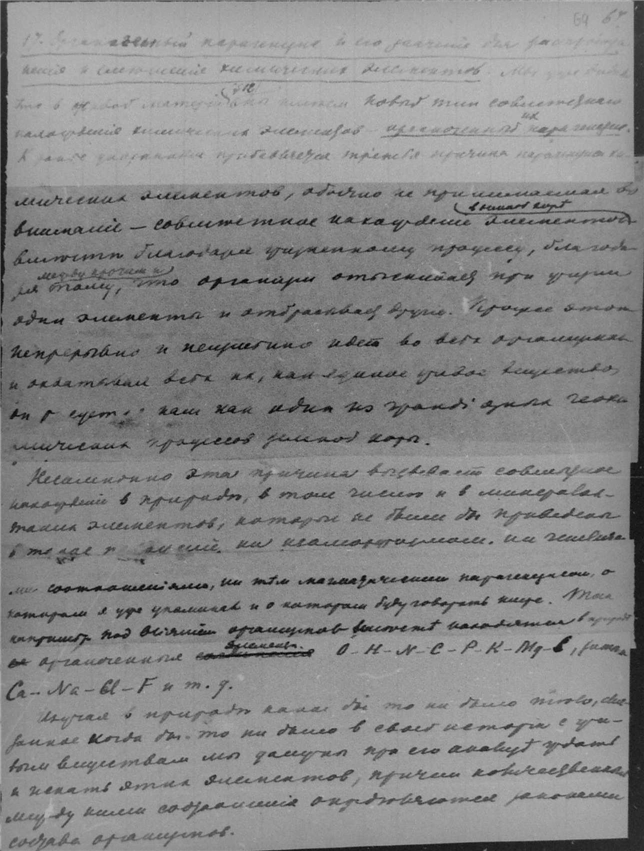 64
17. парагенезис и его значение для
химических элементов. Мы уже
в живой материи новый тип совместного
нахождения химических элементов - органогенный их парагенезис.
К прибавляется третья причина парагенезиса хи-
мических элементов, обычно не принимаемая во
внимание – совместное нахождение в земной коре элементов
вместе благодаря жизненному процессу, благода-
ря между прочим и тому, что организм при жизни
одни элементы и отбрасывает другие. Процесс этот
непрерывно и идет во всех организмах
и охватывает всех их, как единое живое вещество,
он как один из грандиозных геохи-
мических процессов земной коры.
Несомненно эта причина вызывает совместное
нахождение в природе, в том числе и в минералах
таких элементов, которые не были бы приведены
в ни изоморфными ни
ми соотношениями, ни тем магматическим парагенезисом, о
котором я уже упоминал и о котором буду говорить ниже. Так
например под влиянием организмов вместе находятся в природе
органогенные элементы O–H–N–C–P–K–Mg–
Ca–Na–Cl–F и т. д.
Изучая в природе какое бы то ни было тело,
когда бы то ни было в своей истории с жи-
вым веществом мы должны при его анализе ждать
и искать этих элементов, причем количественные
между ними соотношения определяются законами
состава организмов.